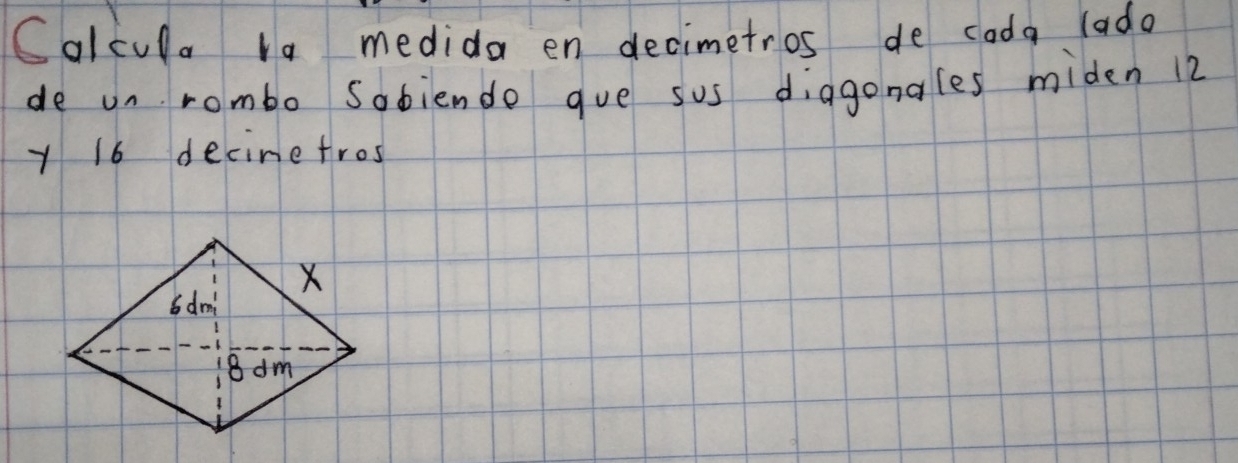 Calcula la medida en decimetros de cada lado
de un rombo Sabiendo que sus diagonales miden 12
y 16 decimetros
X
6 dm
8 dm